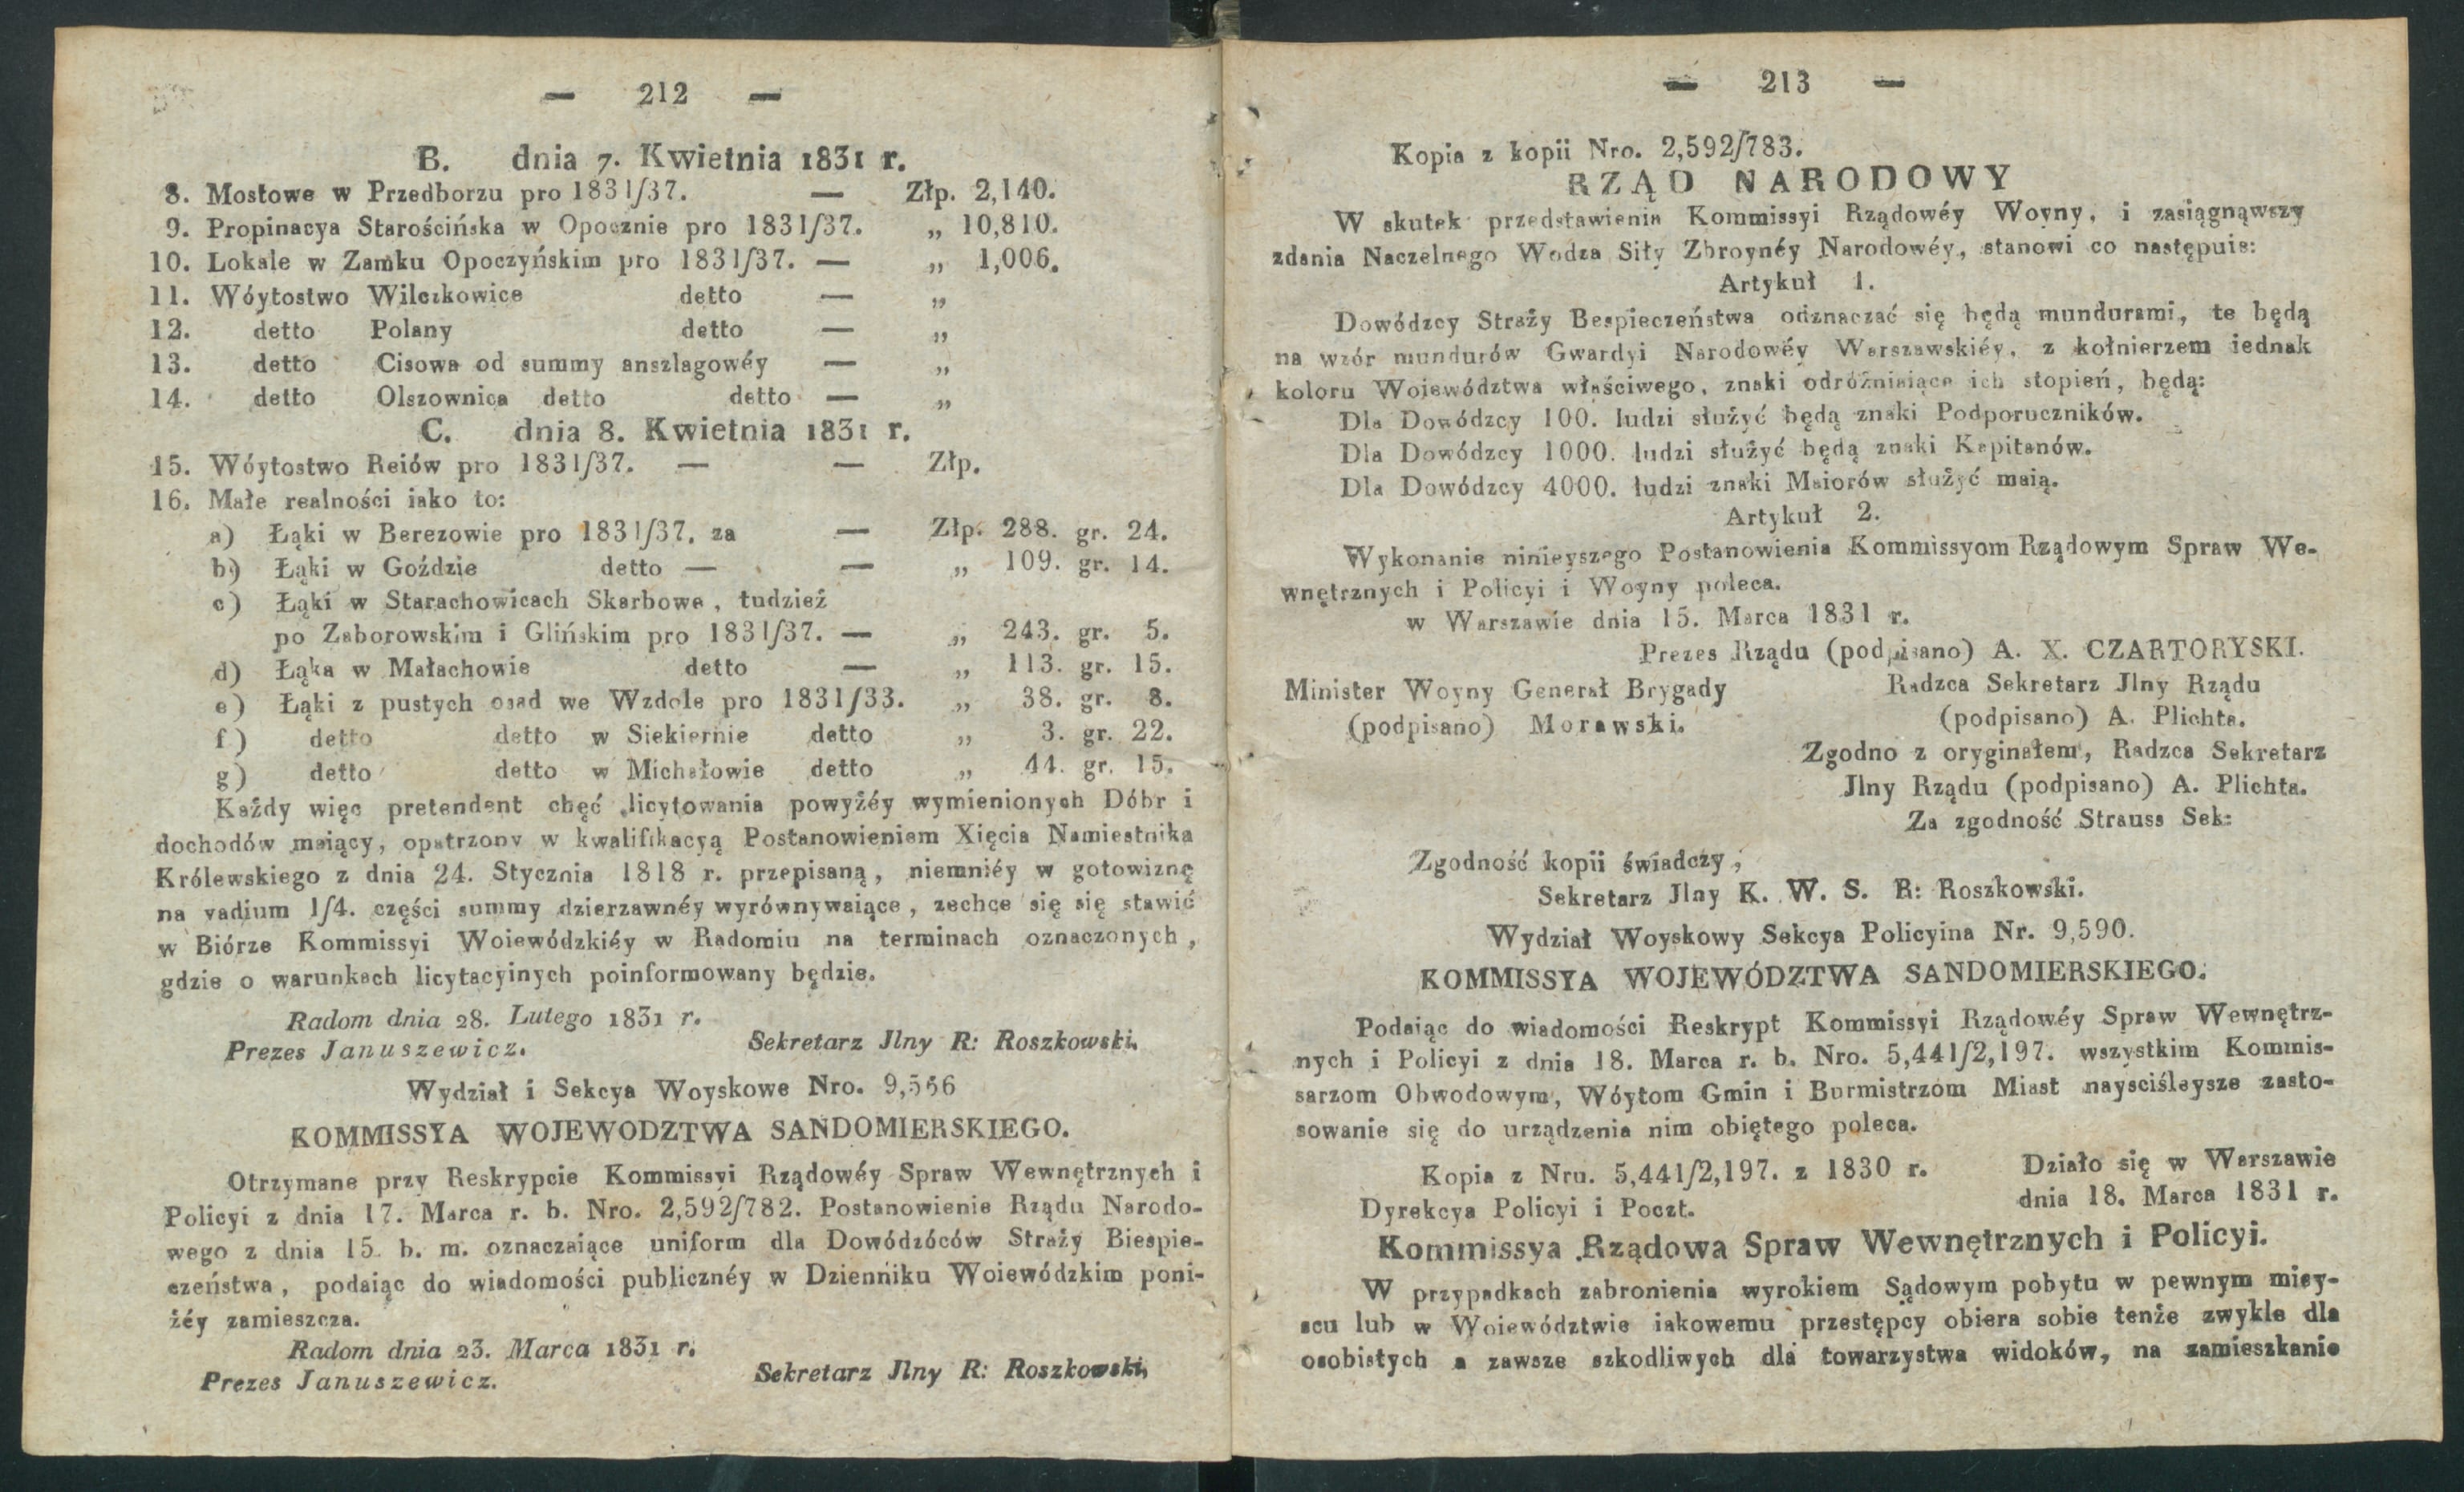 — 212 —
B. dnia 7. Kwietnia 1831 r.
8. Mostowe w Przedborzu pro 1831/37. — Złp. 2,140.
9. Propinacya Starościńska w Opocznie pro 1831/37. „ 10,810.
10. Lokale w Zamku Opoczyńskim pro 1831/37. — „ 1,006.
11. Wóytostwo Wilczkowice detto — „
12. detto Polany detto — „
13. detto Cisowa od summy anszlagowéy — „
14. detto Olszownica detto detto — „
C. dnia 8. Kwietnia 1831 r.
15. Wóytostwo Reiów pro 1831/37. — — Złp.
16. Małe realności iako to:
a) Łąki w Berezowie pro 1831/37. za — Złp. 288. gr. 24.
b) Łąki w Goździe detto — — „ 109. gr. 14.
c) Łąki w Starachowicach Skarbowe, tudzież
po Zaborowskim i Glińskim pro 1831/37. — „ 243. gr. 5.
d) Łąka w Małachowie detto — „ 113. gr. 15.
e) Łąki z pustych osad we Wzdole pro 1831/33. „ 38. gr. 8.
f) detto detto w Siekiernie detto „ 3. gr. 22.
g) detto detto w Michałowie detto „ 44. gr. 15.
Każdy więc pretendent chęć licytowania powyżéy wymienionych Dóbr i
dochodów maiący, opatrzony w kwalifikacyą Postanowieniem Xięcia Namiestnika
Królewskiego z dnia 24. Stycznia 1818 r. przepisaną, niemniéy w gotowiznę
na vadium 1/4. części summy dzierzawnéy wyrównywaiące, zechce się się stawić
w Biórze Kommissyi Woiewódzkiéy w Radomiu na terminach oznaczonych,
gdzie o warunkach licytacyinych poinformowany będzie.
Radom dnia 28. Lutego 1831 r.
Prezes Januszewicz. Sekretarz Jlny R: Roszkowski.
Wydział i Sekcya Woyskowe Nro. 9,566
KOMMISSYA WOJEWODZTWA SANDOMIERSKIEGO.
Otrzymane przy Reskrypcie Kommissyi Rządowéy Spraw Wewnętrznych i
Policyi z dnia 17. Marca r. b. Nro. 2,592/782. Postanowienie Rządu Narodo-
wego z dnia 15. b. m. oznaczaiące uniform dla Dowódzóców Straży Biespie-
czeństwa, podaiąc do wiadomości publicznéy w Dzienniku Woiewódzkim poni-
żéy zamieszcza.
Radom dnia 23. Marca 1831 r.
Prezes Januszewicz. Sekretarz Jlny R: Roszkowski,
— 213 —
Kopia z kopii Nro. 2,592/783.
RZĄD NARODOWY
W skutek przedstawienia Kommissyi Rządowéy Woyny, i zasiągnąwszy
zdania Naczelnego Wodza Siły Zbroynéy Narodowéy, stanowi co następuie:
Artykuł 1.
Dowódzcy Straży Bespieczeństwa odznaczać się będą mundurami, te będą
na wzór mundurów Gwardyi Narodowéy Warszawskiéy, z kołnierzem iednak
koloru Woiewództwa właściwego, znaki odróżniaiące ich stopień, będą:
Dla Dowódzcy 100. ludzi służyć będą znaki Podporuczników.
Dla Dowódzcy 1000. ludzi służyć będą znaki Kapitanów.
Dla Dowódzcy 4000. ludzi znaki Maiorów służyć maią.
Artykuł 2.
Wykonanie ninieyszego Postanowienia Kommissyom Rządowym Spraw We-
wnętrznych i Policyi i Woyny poleca.
w Warszawie dnia 15. Marca 1831 r.
Prezes Rządu (podpisano) A. X. CZARTORYSKI.
Minister Woyny Generał Brygady
(podpisano) Morawski.
Radzca Sekretarz Jlny Rządu
(podpisano) A. Plichta.
Zgodno z oryginałem, Radzca Sekretarz
Jlny Rządu (podpisano) A. Plichta.
Za zgodność Strauss Sek:
Zgodność kopii świadczy,
Sekretarz Jlny K. W. S. R: Roszkowski.
Wydział Woyskowy Sekcya Policyina Nr. 9,590.
KOMMISSYA WOJEWÓDZTWA SANDOMIERSKIEGO.
Podaiąc do wiadomości Reskrypt Kommissyi Rządowéy Spraw Wewnętrz-
nych i Policyi z dnia 18. Marca r. b. Nro. 5,441/2,197. wszystkim Kommis-
sarzom Obwodowym, Wóytom Gmin i Burmistrzom Miast nayściśleysze zasto-
sowanie się do urządzenia nim obiętego poleca.
Kopia z Nru. 5,441/2,197. z 1830 r.
Dyrekcya Policyi i Poczt.
Działo się w Warszawie
dnia 18. Marca 1831 r.
Kommissya Rządowa Spraw Wewnętrznych i Policyi.
W przypadkach zabronienia wyrokiem Sądowym pobytu w pewnym miey-
scu lub w Woiewództwie iakowemu przestępcy obiera sobie tenże zwykle dla
osobistych a zawsze szkodliwych dla towarzystwa widoków, na zamieszkanie